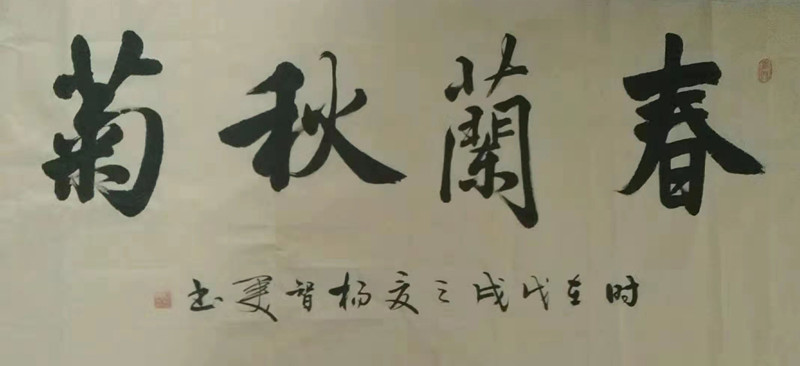 春蘭秋菊
时在戊戌之夏杨智

书